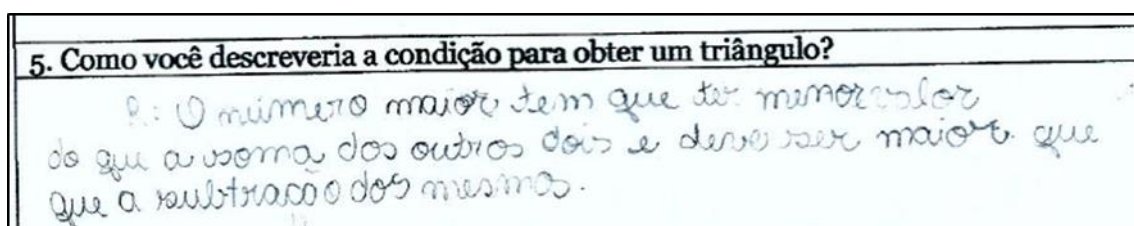 5. Como você descreveria a condição para obter um triângulo?
R: O número maior tem que ter menor valor
do que a soma dos outros dois e deve ser maior que
que a subtração dos mesmos.